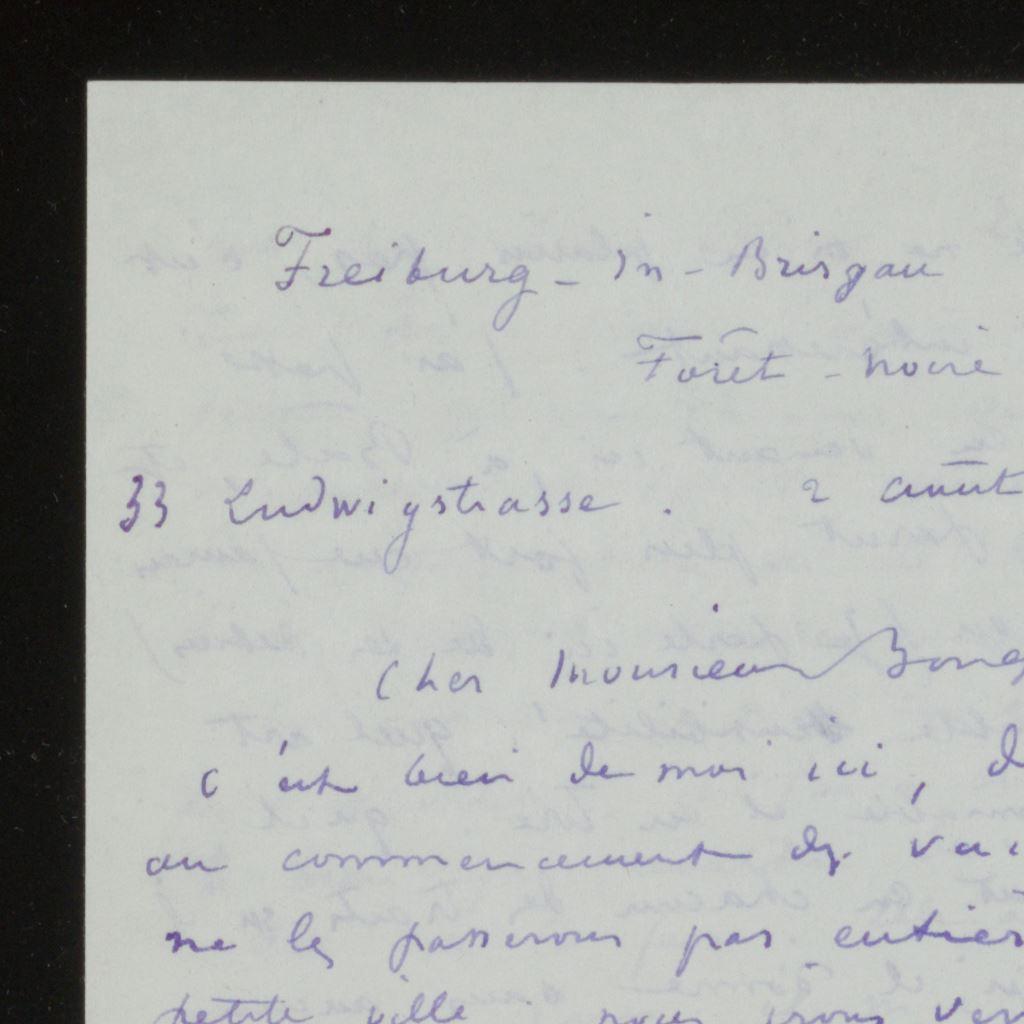 Freiburg - In - Brisgau
Forêt - noire
33 Ludwigstrasse. 2 août
Cher Monsieur
c'est bien de moi ici, d
au commencement des vac
ne les passerons pas entier
petite ville nous irons ver